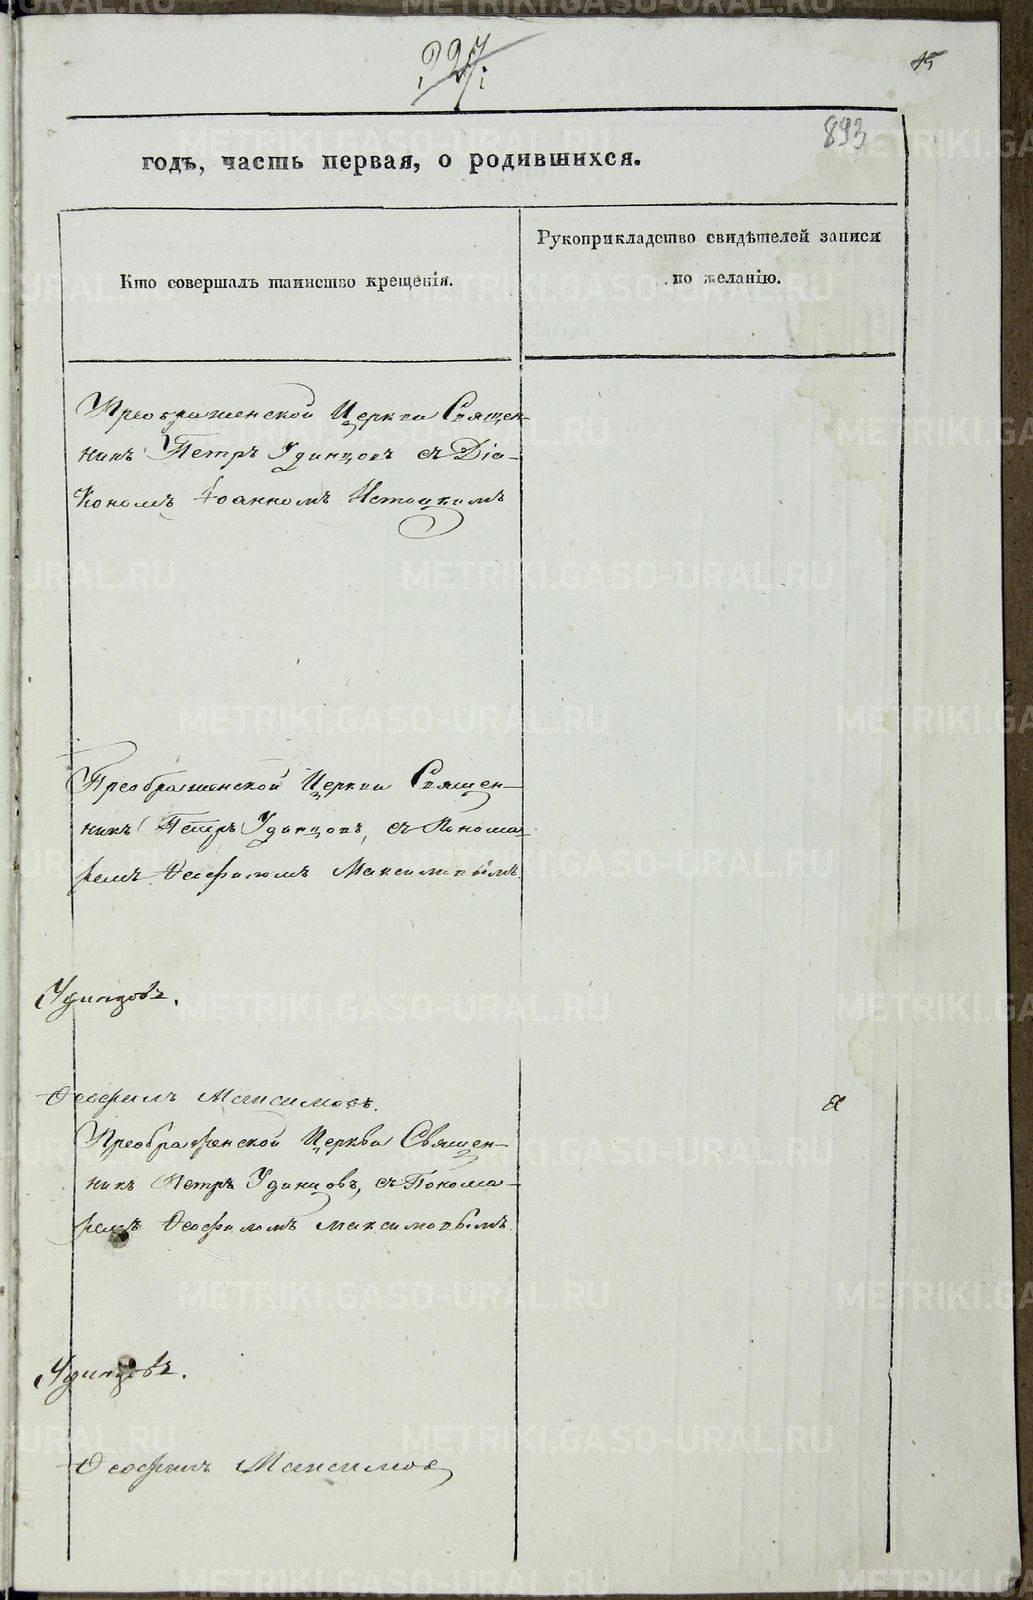 327
45
893
годъ, часть первая, о родившихся.
Кто совершалъ таинство крещенія.
Рукоприкладство свидѣтелей записи
по желанію.
Преображенской Церкви Священ-
никъ Петръ Удинцовъ съ Діа-
кономъ Іоанномъ
Преображенской Церкви Священ-
никъ Петръ Удинцовъ, съ Понома-
ремъ Ѳеофиломъ Максимовымъ
Удинцовъ.
Ѳеофилъ Максимовъ.
Преображенской Церкви Священ-
никъ Петръ Удинцовъ, съ Понома-
ремъ Ѳеофиломъ Максимовымъ
Удинцовъ.
Ѳеофилъ Максимовъ
METRIKI.GASO-URAL.RU